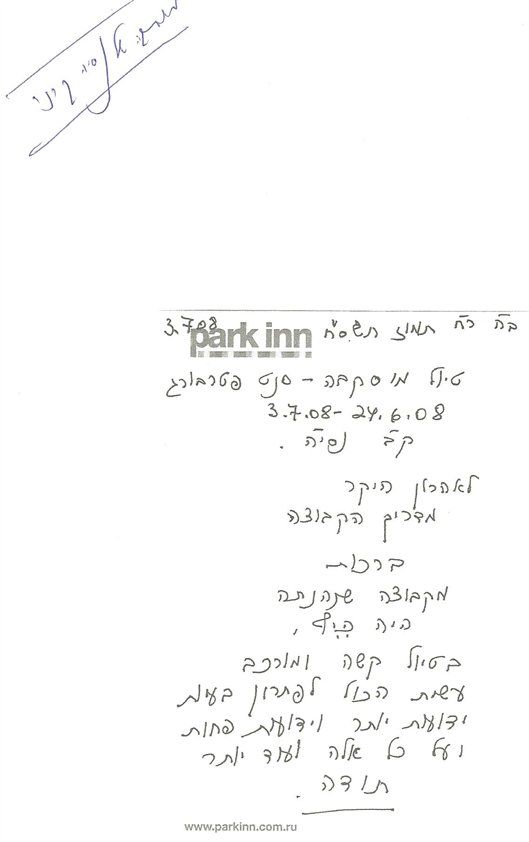 ב"ה ר"ח תמוז תשס"ח 3.7.08
park inn
טיול מוסקבה - סנט פטרבורג
3.7.08 - 24.6.08
.
לאהרון היקר
מדריך הקבוצה
ברכות
מקבוצה שנהנתה
היה כיף,
בטיול קשה ומורכב
עשית הכול לפתרון בעיות
ידועות יותר וידועות פחות
ועל כל אלה ועוד יותר
תודה.
www.parkinn.com.ru